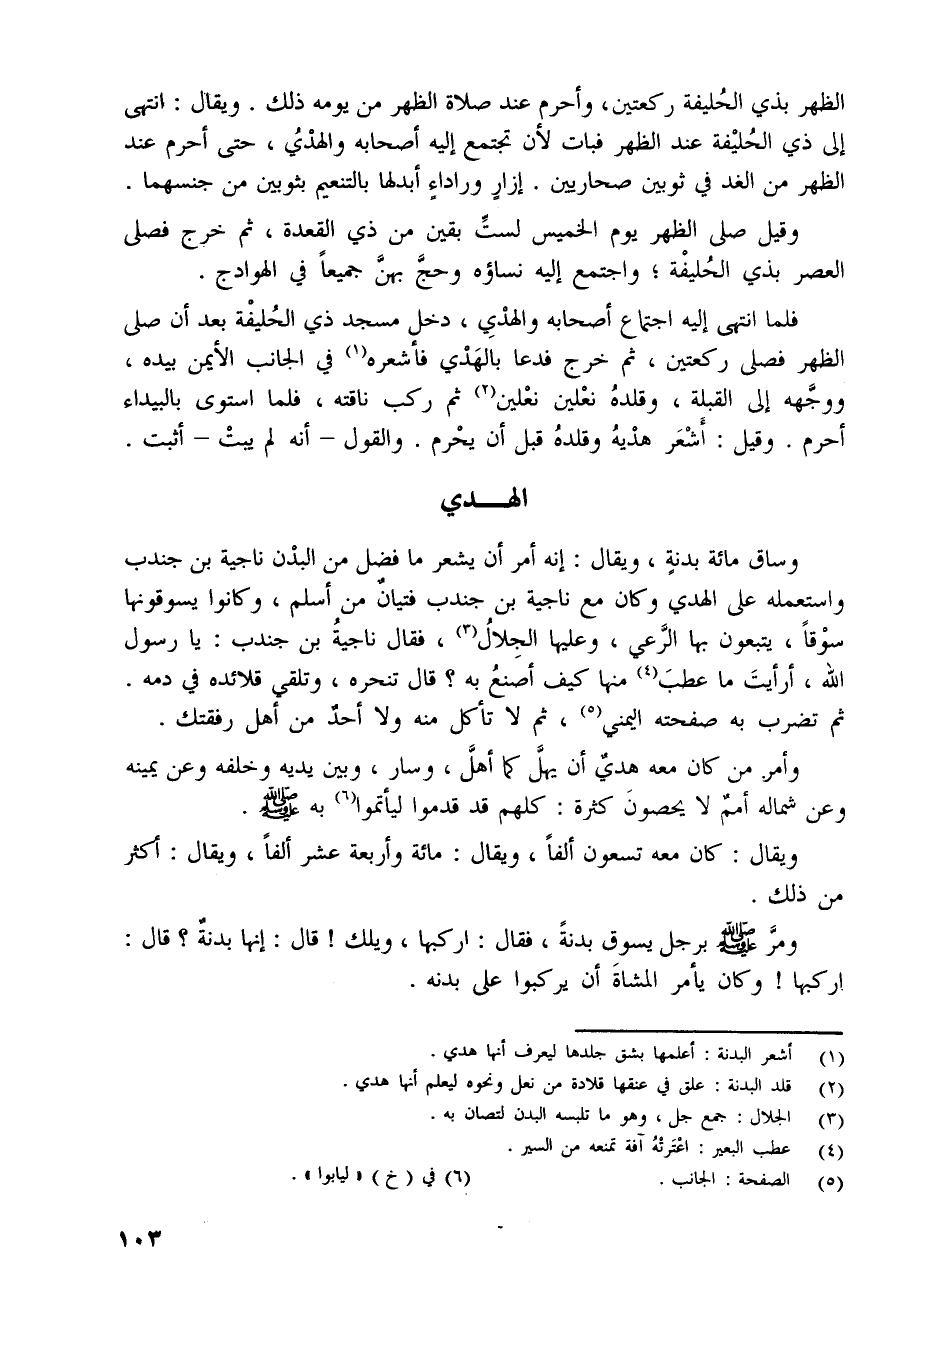 الظهر بذي الحُليفة ركعتين، وأحرم عند صلاة الظهر من يومه ذلك . ويقال : انتهى
إلى ذي الحُليْفة عند الظهر فبات لأن تجتمع إليه أصحابه والهدْيُ ، حتى أحرم عند
الظهر من الغد في ثوبين صحاريين . إزارٍ وراداءٍ أبدلها بالتنعيم بثوبين من جنسهما .
وقيل صلى الظهر يوم الخميس لستٍّ بقين من ذي القعدة ، ثم خرج فصلى
العصر بذي الحُليفْة ؛ واجتمع إليه نساؤه وحجَّ بهنَّ جميعاً في الهوادج .
فلما انتهى إليه اجتماع أصحابه والهدْيِ ، دخل مسجد ذي الحُليفْة بعد أن صلى
الظهر فصلى ركعتين ، ثم خرج فدعا بالهَدْي فأشعره(١) في الجانب الأيمن بيده ،
ووجَّهه إلى القبلة ، وقلدهُ نعْلين نعْلين(٢) ثم ركب ناقته ، فلما استوى بالبيداء
أحرم . وقيل : أَشْعَر هدْيهُ وقلدهُ قبل أن يحْرم . والقول – أنه لم يبتْ – أثبت .
الهـــدي
وساق مائة بدنةٍ ، ويقال : إنه أمر أن يشعر ما فضل من البدْن ناجية بن جندب
واستعمله على الهدي وكان مع ناجية بن جندب فتيانٌ من أسلم ، وكانوا يسوقونها
سوْقاً ، يتبعون بها الرَّعي ، وعليها الجِلالُ(٣) ، فقال ناجيةُ بن جندب : يا رسول
الله ، أرأيتَ ما عطبَ(٤) منها كيف أصنعُ به ؟ قال تنحره ، وتلقي قلائده في دمه .
ثم تضرب به صفحته اليمني(٥) ، ثم لا تأكل منه ولا أحدٌ من أهل رفقتك .
وأمر من كان معه هديٌ أن يهلَّ كما أهلَّ ، وسار ، وبين يديه وخلفه وعن يمينه
وعن شماله أممٌ لا يحصونَ كثرة : كلهم قد قدموا ليأتموا(٦) به ﷺ .
ويقال : كان معه تسعون ألفاً ، ويقال : مائة وأربعة عشر ألفاً ، ويقال : أكثر
من ذلك .
ومرَّ ﷺ برجل يسوق بدنةً ، فقال : اركبها ، ويلك ! قال : إنها بدنةٌ ؟ قال :
اركبها ! وكان يأمر المشاةَ أن يركبوا على بدنه .
(١) أشعر البدنة : أعلمها بشق جلدها ليعرف أنها هدي .
(٢) قلد البدنة : علق في عنقها قلادة من نعل ونحوه ليعلم أنها هدي .
(٣) الجلال : جمع جل ، وهو ما تلبسه البدن لتصان به .
(٤) عطب البعير : اعْتَرتْهُ آفة تمنعه من السير .
(٥) الصفحة : الجانب . (٦) في ( خ ) « ليابوا » .
١٠٣